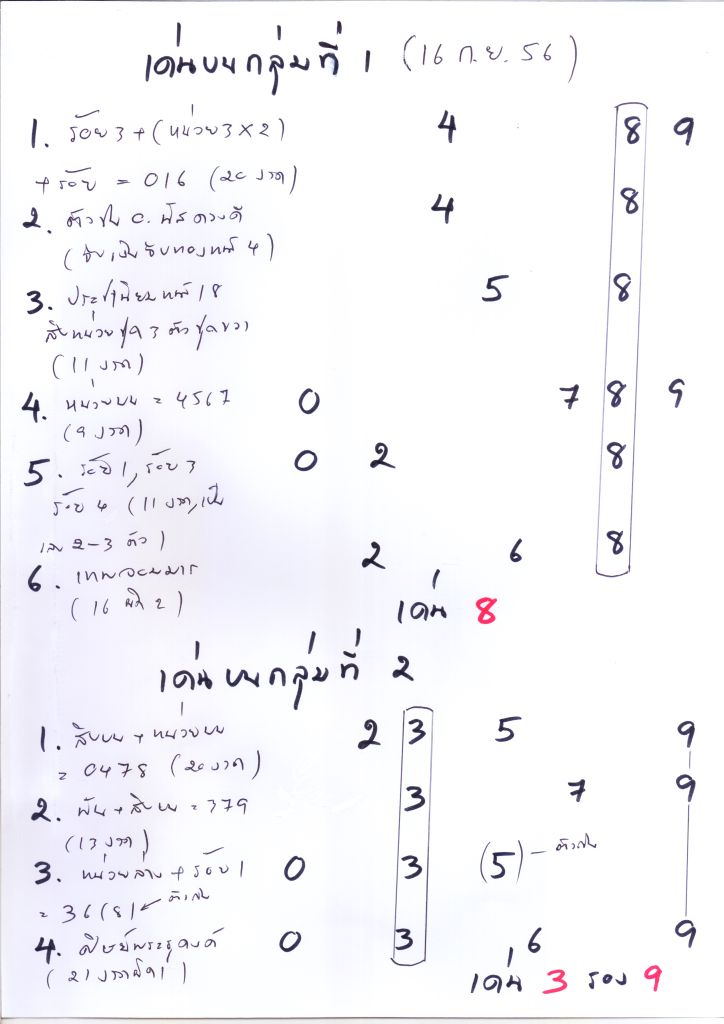 เด่นบนกลุ่มที่ 1 (16 ก.ย. 56)
1. ร้อย 3 + (หน่วย 3 x 2) 4 8 9
+ ร้อย = 016 (20 งวด)
2. 4 8
(ซับเงินซับทองหน้า 4)
3. ประชานิยมหน้า 18 5 8
สิบหน่วยชุด 3 ตัวชุดขวา
(11 งวด)
4. หน่วยบน = 4567 0 7 8 9
(9 งวด)
5. ร้อย 1, ร้อย 3 0 2 8
ร้อย 4 (11 งวด, เป็น
เลข 2-3 ตัว) 2 6 8
6.
(16 ผิด 2) เด่น 8
เด่นบนกลุ่มที่ 2
1. สิบบน + หน่วยบน 2 3 5 9
= 0478 (20 งวด)
2. พัน + สิบบน = 379 3 7 9
(13 งวด)
3. หน่วยล่าง + ร้อย 1 0 3 (5)
= 36(8)
4. ศิษย์พระธุดงค์ 0 3 6 9
(21 งวดผิด 1) เด่น 3 รอง 9